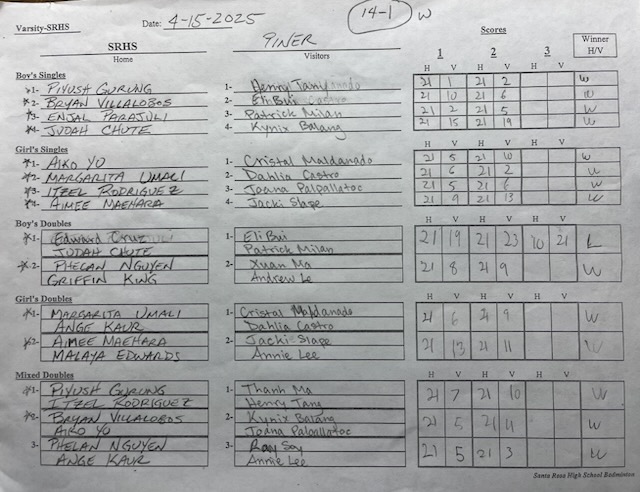 Varsity-SRHS Date: 4-15-2025 14-1 W
SRHS PINER Scores Winner
Home Visitors 1 2 3 H/V
Boy's Singles H V H V H V
*1- PIYUSH GURUNG 1- Henry Tang 21 1 21 2 W
*2- BRYAN VILLALOBOS 2- Eli Bui 21 10 21 6 W
*3- ENJAL PARAJULI 3- Patrick Milan 21 2 21 5 W
*4- JUDAH CHUTE 4- Kynix Batang 21 15 21 19 W
Girl's Singles H V H V H V
*1- AIKO YU 1- Cristal Maldanado 21 5 21 10 W
*2- MARGARITA UMALI 2- Dahlia Castro 21 6 21 2 W
*3- ITZEL RODRIGUEZ 3- Joana Palpallatoc 21 5 21 6 W
*4- AIMEE MAEHARA 4- Jacki Slape 21 9 21 13 W
Boy's Doubles H V H V H V
*1- Edward Cruz 1- Eli Bui 21 19 21 23 10 21 L
JUDAH CHUTE Patrick Milan
*2- PHELAN NGUYEN 2- Xuan Ma 21 8 21 9 W
GRIFFIN KING Andrew Le
Girl's Doubles H V H V H V
*1- MARGARITA UMALI 1- Cristal Maldanado 21 6 21 9 W
ANGE KAUR Dahlia Castro
*2- AIMEE MAEHARA 2- Jacki Slape 21 13 21 11 W
MALAYA EDWARDS Annie Lee
Mixed Doubles H V H V H V
*1- PIYUSH GURUNG 1- Thanh Ma 21 7 21 10 W
ITZEL RODRIGUEZ Henry Tang
*2- BRYAN VILLALOBOS 2- Kynix Batang 21 5 21 11 W
AIKO YU Joana Palpallatoc
3- PHELAN NGUYEN 3- Ray Soy 21 5 21 3 W
ANGE KAUR Annie Lee
Santa Rosa High School Badminton